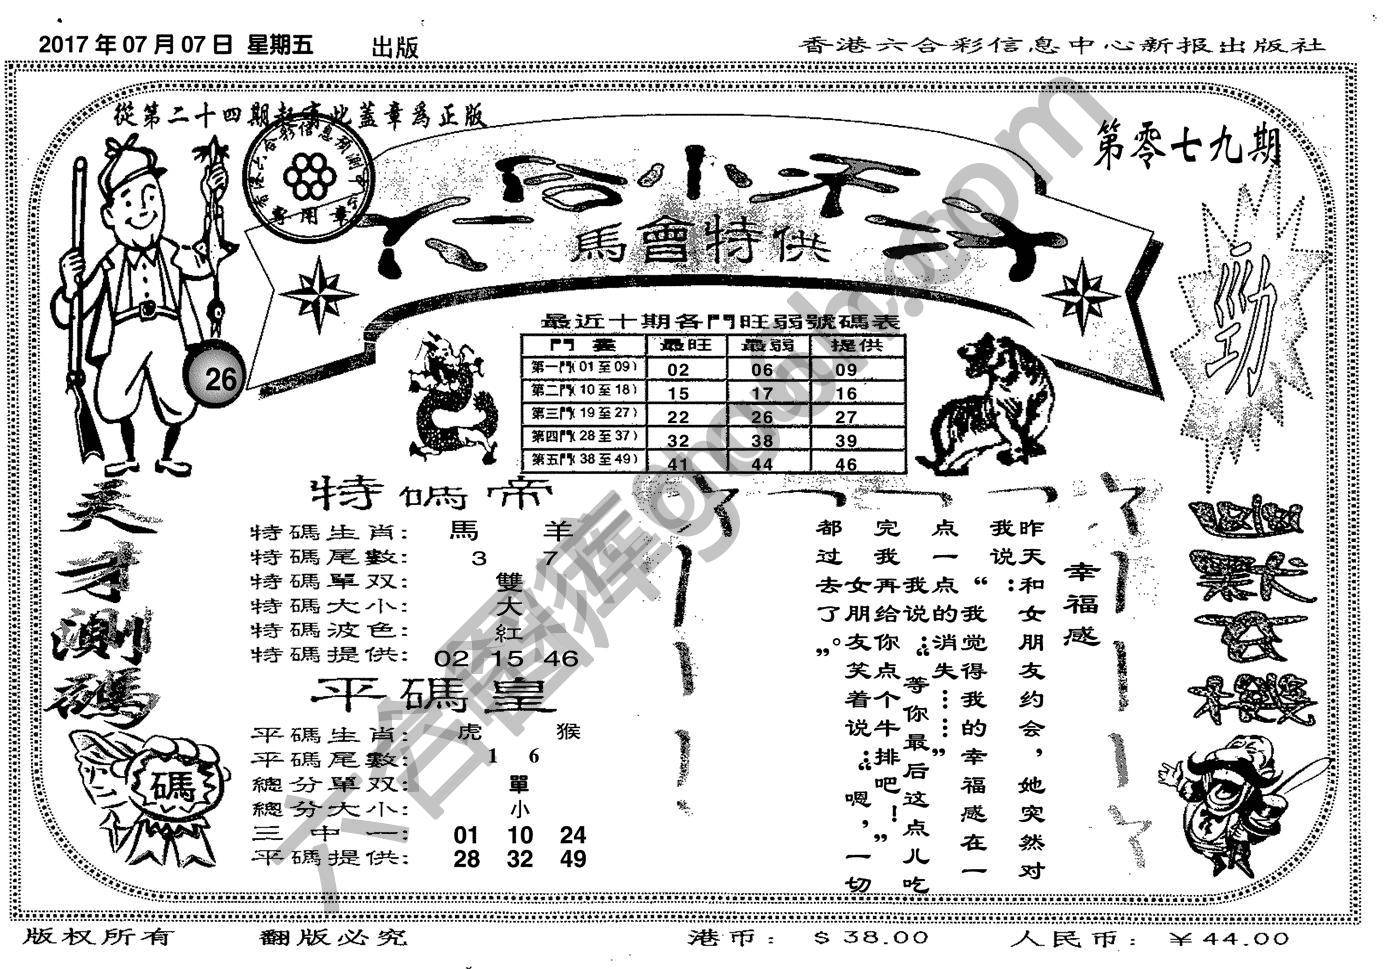 2017年07月07日 星期五 出版
香港六合彩信息中心新报出版社
從第二十四期起審此蓋章爲正版
第零七九期
六合小天才
馬會特供
勁
26
最近十期各門旺弱號碼表
最旺 最弱 提供
第一門(01至09) 02 06 09
第二門(10至18) 15 17 16
第三門(19至27) 22 26 27
第四門(28至37) 32 38 39
第五門(38至49) 41 44 46
天才測碼
碼
特碼帝
特碼生肖: 馬 羊
特碼尾數: 3 7
特碼單双: 雙
特碼大小: 大
特碼波色: 紅
特碼提供: 02 15 46
平碼皇
平碼生肖: 虎 猴
平碼尾數: 1 6
總分單双: 單
總分大小: 小
三中一: 01 10 24
平碼提供: 28 32 49
幸福感
昨天和女朋友约会，她突然对
我说：“我觉得我的幸福感在一
点一点的消失……”
我说：“等你最后这点儿吃
完我再给你点个牛排吧！”
女朋友笑着说：“嗯，一切
都过去了。”
六合图库ghdh.com
版权所有 翻版必究 港币: $38.00 人民币: ￥44.00